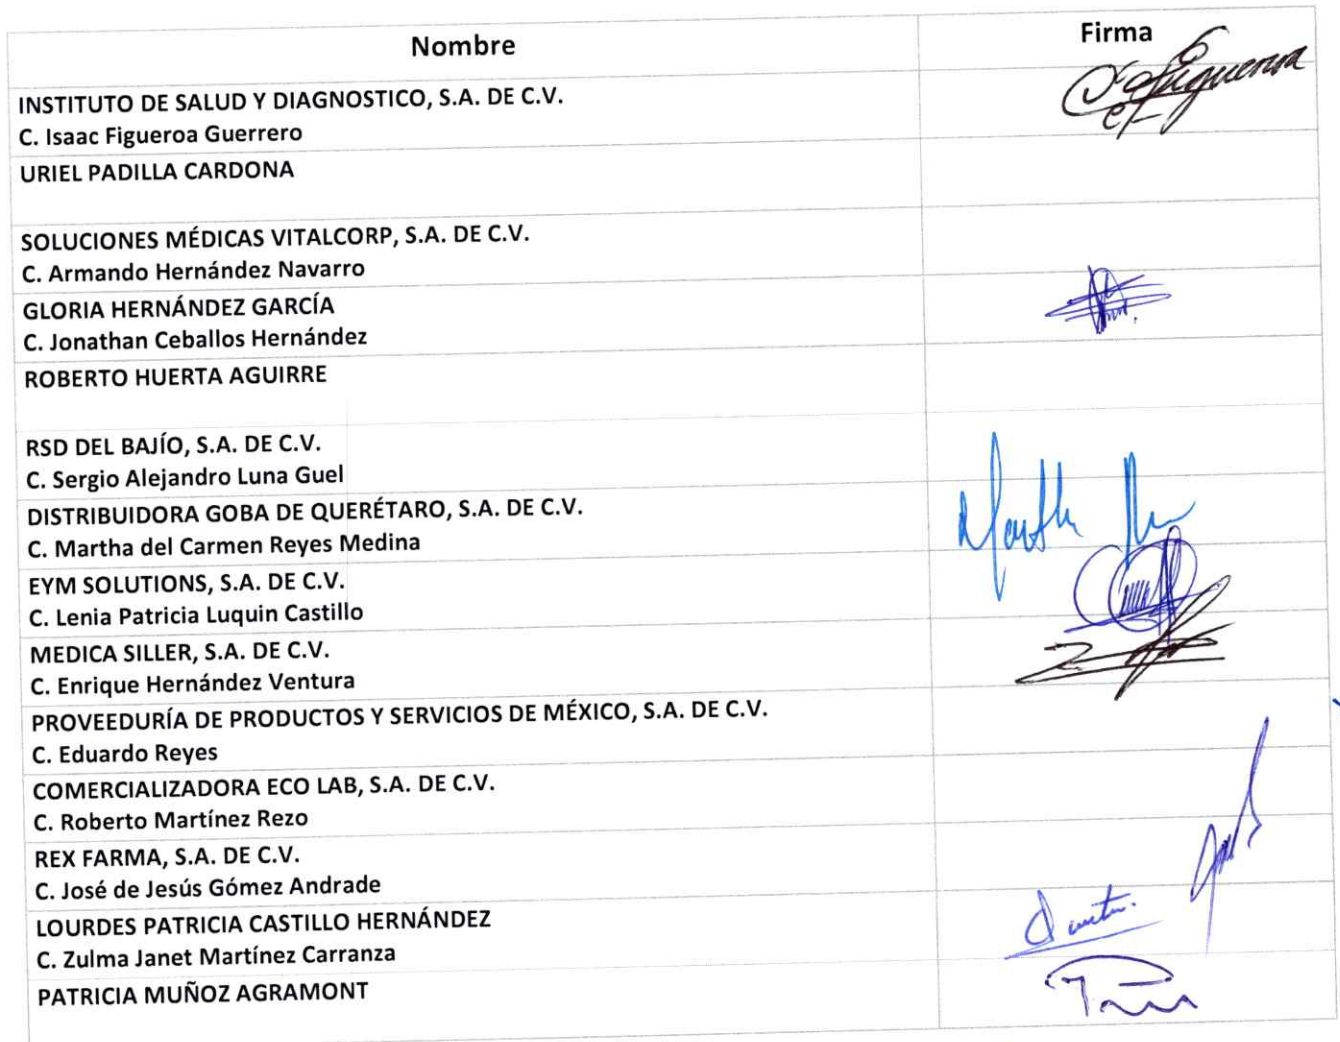 Nombre
Firma
INSTITUTO DE SALUD Y DIAGNOSTICO, S.A. DE C.V.
C. Isaac Figueroa Guerrero
Figueroa
URIEL PADILLA CARDONA
SOLUCIONES MÉDICAS VITALCORP, S.A. DE C.V.
C. Armando Hernández Navarro
GLORIA HERNÁNDEZ GARCÍA
C. Jonathan Ceballos Hernández
ROBERTO HUERTA AGUIRRE
RSD DEL BAJÍO, S.A. DE C.V.
C. Sergio Alejandro Luna Guel
DISTRIBUIDORA GOBA DE QUERÉTARO, S.A. DE C.V.
C. Martha del Carmen Reyes Medina
EYM SOLUTIONS, S.A. DE C.V.
C. Lenia Patricia Luquin Castillo
MEDICA SILLER, S.A. DE C.V.
C. Enrique Hernández Ventura
PROVEEDURÍA DE PRODUCTOS Y SERVICIOS DE MÉXICO, S.A. DE C.V.
C. Eduardo Reyes
COMERCIALIZADORA ECO LAB, S.A. DE C.V.
C. Roberto Martínez Rezo
REX FARMA, S.A. DE C.V.
C. José de Jesús Gómez Andrade
LOURDES PATRICIA CASTILLO HERNÁNDEZ
C. Zulma Janet Martínez Carranza
PATRICIA MUÑOZ AGRAMONT